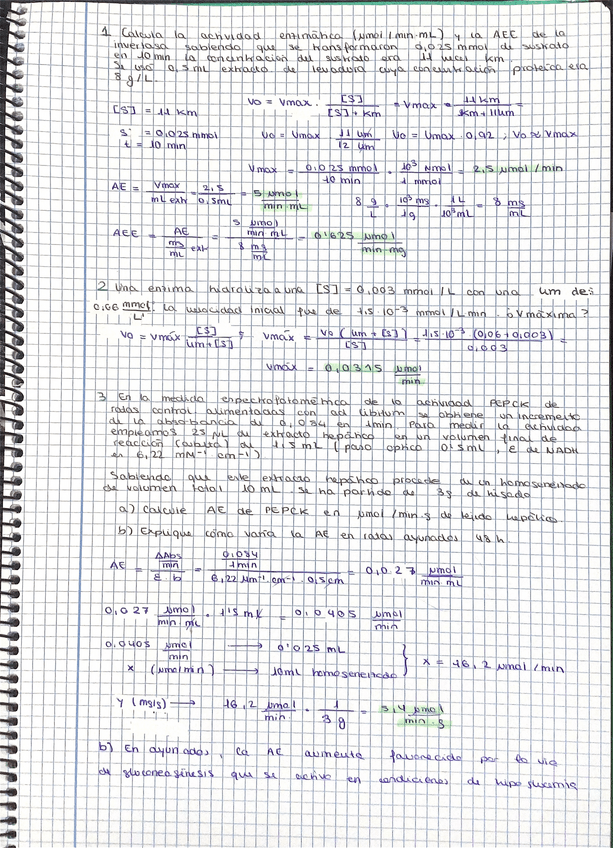 1. Calcula la actividad enzimática (µmol/min·mL) y la AEE de la
invertasa sabiendo que se transformaron 0,025 mmol de sustrato
en 10 min la concentración del sustrato era 11 veces km.
Se usó 0,5 mL extracto de levadura cuya concentración proteica era
8 g/L.
[S] = 11 Km    Vo = Vmax · [S] / [S] + Km = Vmax = 11 Km / Km + 11 Km =
S = 0,025 mmol    Vo = Vmax 11 Km / 12 Km    Vo = Vmax · 0,92 ; Vo ≈ Vmax
t = 10 min
Vmax = 0,025 mmol / 10 min · 10³ µmol / 1 mmol = 2,5 µmol/min
AE = Vmax / mL extr = 2,5 / 0,5 mL = 5 µmol / min mL    8 g / L · 10³ mg / 1 g · 1 L / 10³ mL = 8 mg / mL
AEE = AE / mg / mL extr = 5 µmol / min mL / 8 mg / mL = 0'625 µmol / min·mg
2 Una enzima hidroliza a una [S] = 0,003 mmol/L con una Km de
0,06 mmol / L. La velocidad inicial fue de 1,5·10⁻³ mmol/L min. ¿Vmáxima?
Vo = Vmáx [S] / Km + [S] ; Vmáx = Vo (Km + [S]) / [S] = 1,5·10⁻³ (0,06 + 0,003) / 0,003 =
Vmáx = 0,0315 µmol / min
3 En la medida espectrofotométrica de la actividad PEPCK de
ratas control alimentadas con ad libitum se obtiene un incremento
de la absorbancia de 0,084 en 1 min. Para medir la actividad
empleamos 25 µL de extracto hepático en un volumen final de
reacción (cubeta) de 1'5 mL (paso óptico 0'5 mL, ε de NADH
es 6,22 mM⁻¹ cm⁻¹)
Sabiendo que este extracto hepático procede de un homogeneizado
de volumen total 10 mL se ha partido de 3g de hígado
a) Calcule AE de PEPCK en µmol/min·g de tejido hepático
b) Explique cómo varía la AE en ratas ayunadas 48 h
AE = ΔAbs / min / ε · b = 0,084 / 1 min / 6,22 µM⁻¹·cm⁻¹ · 0,5 cm = 0,027 µmol / min mL
0,027 µmol / min·mL · 1'5 mL = 0,0405 µmol / min
0,0405 µmol / min → 0'025 mL
x (µmol/min) → 10 mL homogeneizado } x = 16,2 µmol/min
y (mg/g) → 16,2 µmol / min · 1 / 3 g = 5,4 µmol / min·g
b) En ayunados, la AE aumenta favorecida por la vía
de gluconeogénesis que se activa en condiciones de hipoglucemia